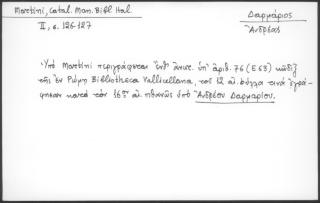 Martini, Catal. Man. Bibl Ital.
II, σ. 126-127
Δαρμάριος
Ἀνδρέας
Ὑπὸ Martini περιγράφεται ὑπ' ἀριθ. 76 (E 53) κῶδιξ
τῆς ἐν Ρώμῃ Bibliotheca Vallicellana, τοῦ 12 αἰ. φύλλα τινὰ ἐγρά-
φησαν κατὰ τὸν 16ον αἰ. πιθανῶς ὑπὸ Ἀνδρέου Δαρμαρίου.